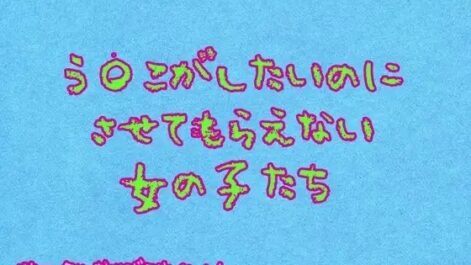 う〇こがしたいのに
させてもらえない
女の子たち